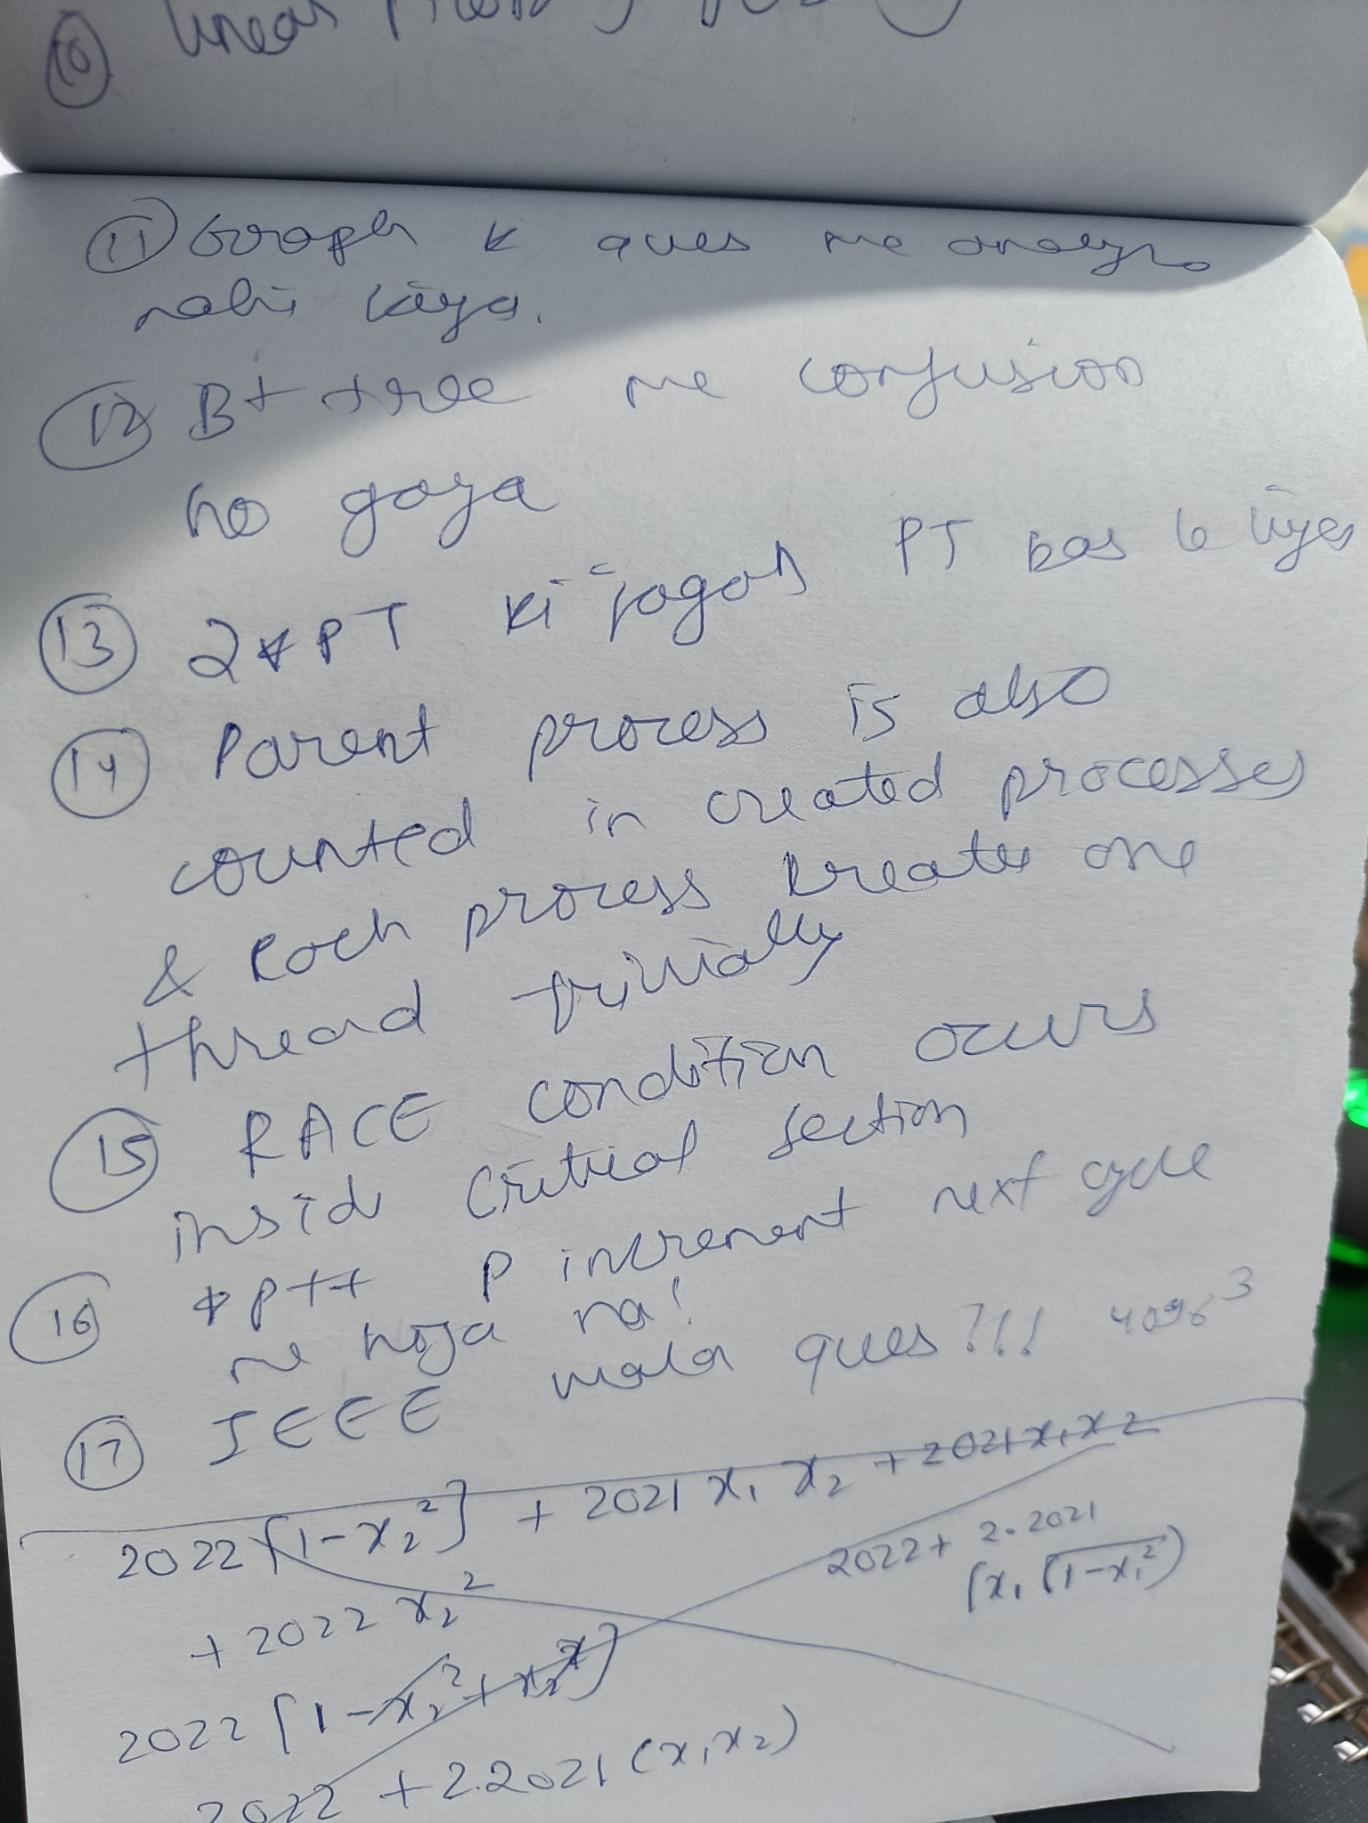 10 linear
11 Graph k ques me analyze
nahi kiya.
12 B+ tree me confusion
ho gaya
13 2*PT ki jagah PT bas le liya
14 Parent process is also
counted in created processes
& Each process kreates one
thread trivially
15 RACE condition occurs
inside critical section
16 *p++ p increment next cycle
me hoga na!
17 IEEE wala ques ?!!! 4096^3
2022[1-x₂²] + 2021 x₁ x₂ + 2021x₁x₂
+ 2022 x₂²
2022 + 2.2021
(x₁ √(1-x₁²))
2022 [1-x₂²+x₂²]
2022 + 2.2021 (x₁x₂)